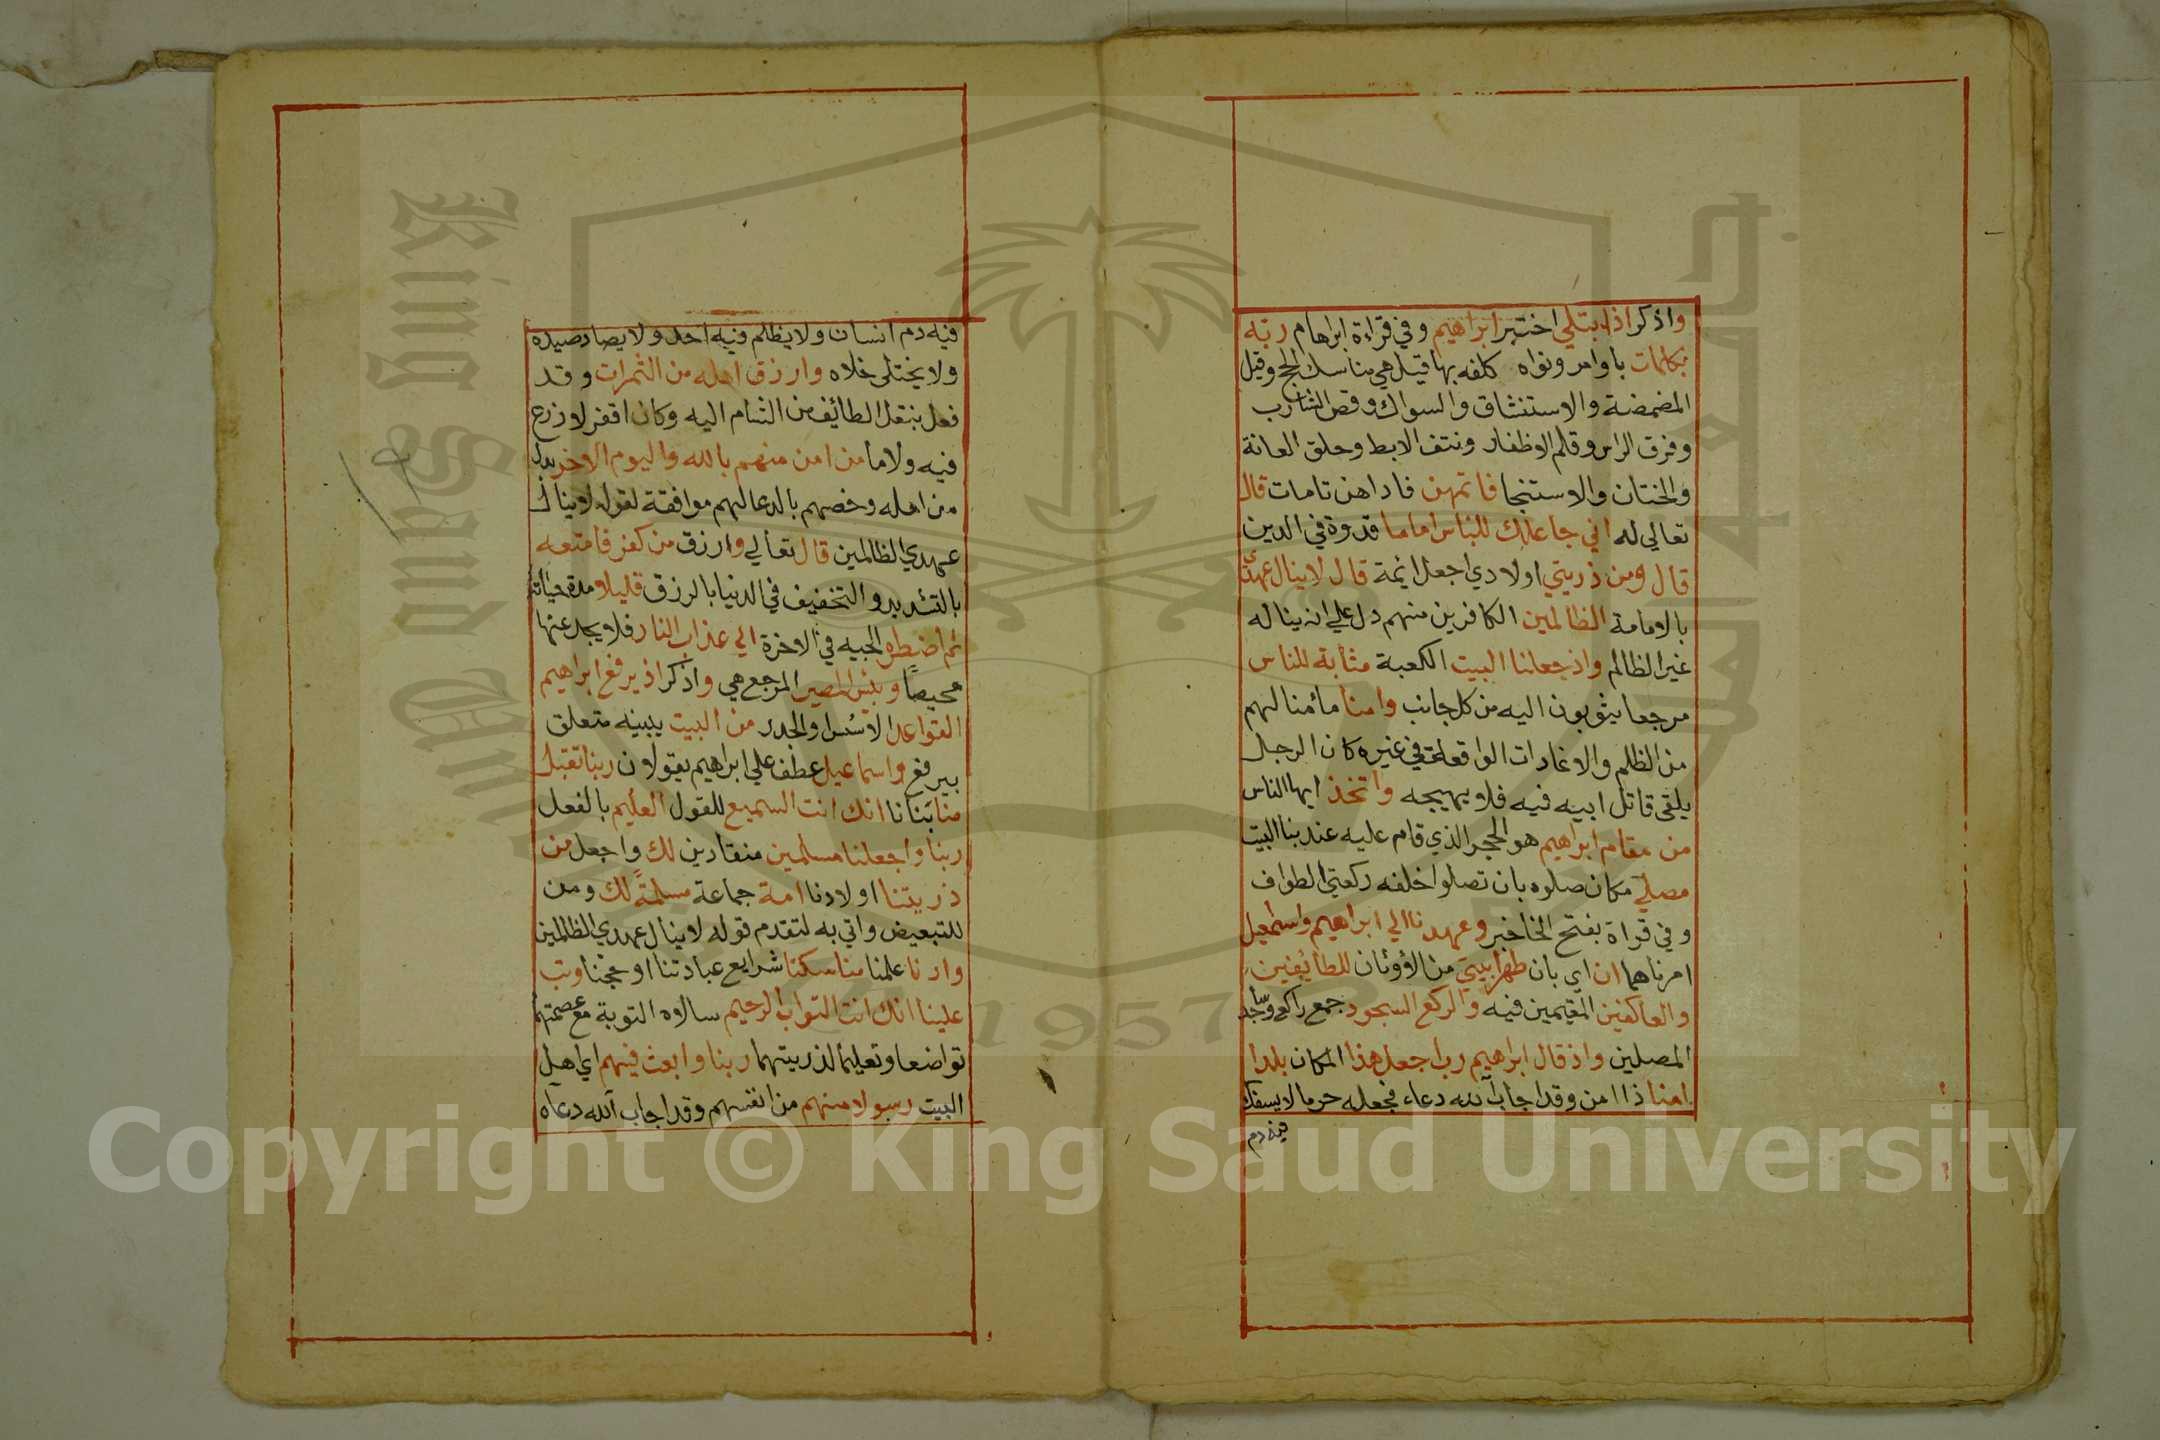 واذكر اذ ابتلي اختبر ابراهيم وفي قراءة ابراهام ربه
بكلمات باوامر ونواه كلفه بها قيل هي مناسك الحج وقيل
المضمضة والاستنشاق والسواك وقص الشارب
وفرق الراس وقلم الاظفار ونتف الابط وحلق العانة
والختان والاستنجا فاتمهن فاداهن تامات قال
تعالي له اني جاعلك للناس اماما قدوة في الدين
قال ومن ذريتي اولادي اجعل ائمة قال لا ينال عهدي
بالامامة الظالمين الكافرين منهم دل علي انه يناله
غير الظالم واذ جعلنا البيت الكعبة مثابة للناس
مرجعا يثوبون اليه من كل جانب وامنا مأمنا لهم
من الظلم والاغارات الواقعة في غيره كان الرجل
يلقى قاتل ابيه فيه فلا يهيجه واتخذ ايها الناس
من مقام ابراهيم هو الحجر الذي قام عليه عند بنا البيت
مصلي مكان صلوه بان تصلوا خلفه ركعتي الطواف
وفي قراة بفتح الخا خبر وعهدنا الي ابراهيم واسمعيل
امرناهما ان اي بان طهرا بيتي من الاوثان للطائفين
والعاكفين المقيمين فيه والركع السجود جمع راكع وساجد
المصلين واذ قال ابراهيم رب اجعل هذا المكان بلدا
امنا ذا امن وقد اجاب الله دعاء فجعله حرما لا يسفك
فيه دم
فيه دم انسان ولا يظلم فيه احد ولا يصاد صيده
ولا يختلى خلاه وارزق اهله من الثمرات وقد
فعل بنقل الطائف من الشام اليه وكان اقفر لا زرع
فيه ولا ما من امن منهم بالله واليوم الاخر بدل
من اهله وخصهم بالدعا لهم موافقة لقوله لا ينال
عهدي الظالمين قال تعالي وارزق من كفر فامتعه
بالتشديد والتخفيف في الدنيا بالرزق قليلا مدة حياته
ثم اضطره الجيه في الاخرة الي عذاب النار فلا يجد عنها
محيصا وبئس المصير المرجع هي واذكر اذ يرفع ابراهيم
القواعد الاسس والجدر من البيت يبنيه متعلق
بيرفع واسماعيل عطف علي ابراهيم يقولان ربنا تقبل
منا بنانا انك انت السميع للقول العليم بالفعل
ربنا واجعلنا مسلمين منقادين لك واجعل من
ذريتنا اولادنا امة جماعة مسلمة لك ومن
للتبعيض واتي به لتقدم قوله لا ينال عهدي الظالمين
وارنا علمنا مناسكنا شرايع عبادتنا او حجنا وتب
علينا انك انت التواب الرحيم سالاه التوبة مع عصمتهما
تواضعا وتعليما لذريتهما ربنا وابعث فيهم اي اهل
البيت رسولا منهم من انفسهم وقد اجاب الله دعاه
King Saud University
1957
Copyright © King Saud University